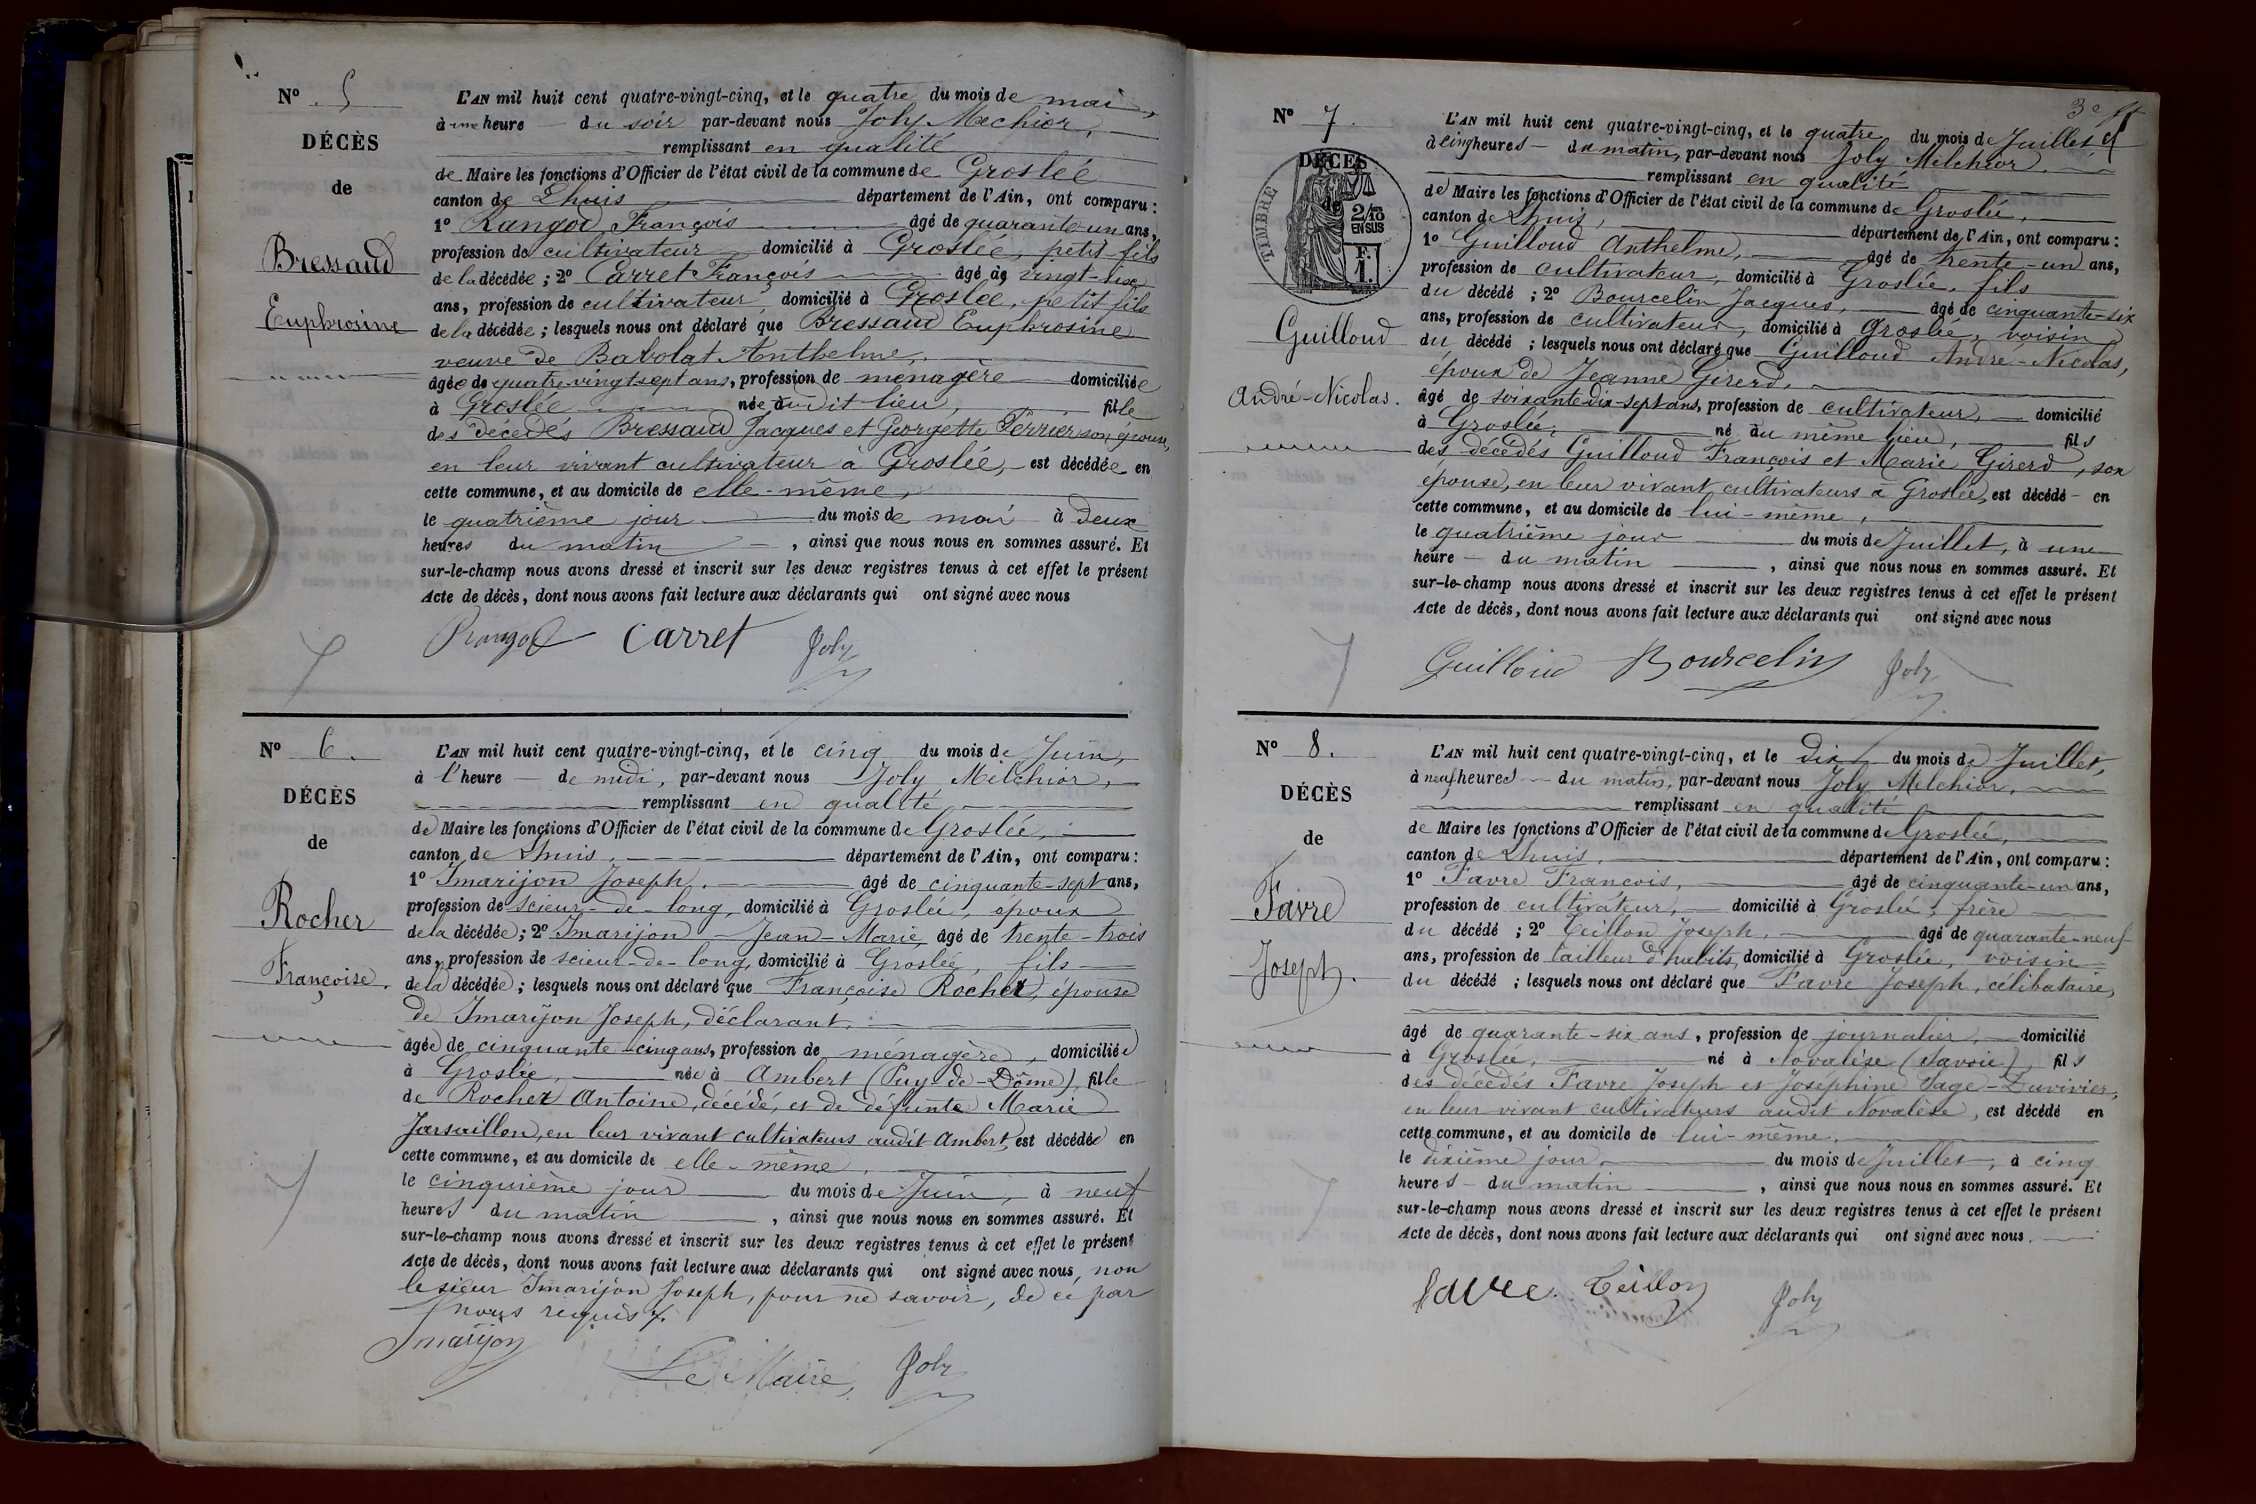 N° 5
DÉCÈS
de
Bressaud
Euphrosine
L'AN mil huit cent quatre-vingt-cinq, et le quatre du mois de mai,
à une heure du soir par-devant nous Joly Mechior,
remplissant en qualité
de Maire les fonctions d'Officier de l'état civil de la commune de Groslée
canton de Lhuis département de l'Ain, ont comparu :
1° Rangod François âgé de quarante-un ans,
profession de cultivateur domicilié à Groslée, petit-fils
de la décédée ; 2° Carret François âgé de vingt-six
ans, profession de cultivateur domicilié à Groslée, petit fils
de la décédée ; lesquels nous ont déclaré que Bressaud Euphrosine
veuve de Babolat Anthelme,
âgée de quatre-vingt sept ans, profession de ménagère domiciliée
à Groslée née dit lieu, fille
des décédés Bressaud Jacques et Georgette Perrier son épouse,
en leur vivant cultivateur à Groslée, est décédée en
cette commune, et au domicile de elle-même,
le quatrième jour du mois de mai à deux
heures du matin , ainsi que nous nous en sommes assuré. Et
sur-le-champ nous avons dressé et inscrit sur les deux registres tenus à cet effet le présent
Acte de décès, dont nous avons fait lecture aux déclarants qui ont signé avec nous
Rangod Carret Joly
N° 6.
DÉCÈS
de
Rocher
Françoise.
L'AN mil huit cent quatre-vingt-cinq, et le cinq du mois de Juin,
à l'heure de midi, par-devant nous Joly Melchior,
remplissant en qualité
de Maire les fonctions d'Officier de l'état civil de la commune de Groslée,
canton de Lhuis, département de l'Ain, ont comparu :
1° Imarijon Joseph, âgé de cinquante-sept ans,
profession de scieur-de-long, domicilié à Groslée, époux
de la décédée ; 2° Imarijon Jean-Marie, âgé de trente-trois
ans, profession de scieur-de-long, domicilié à Groslée, fils
de la décédée ; lesquels nous ont déclaré que Françoise Rocher, épouse
de Imarijon Joseph, déclarant,
âgée de cinquante-cinq ans, profession de ménagère, domiciliée
à Groslée, née à Ambert (Puy-de-Dôme), fille
de Rocher Antoine, décédé, et de défunte Marie
Jarsaillon, en leur vivant cultivateurs audit Ambert, est décédée en
cette commune, et au domicile de elle-même,
le cinquième jour du mois de Juin, à neuf
heures du matin , ainsi que nous nous en sommes assuré. Et
sur-le-champ nous avons dressé et inscrit sur les deux registres tenus à cet effet le présent
Acte de décès, dont nous avons fait lecture aux déclarants qui ont signé avec nous, non
le sieur Imarijon Joseph, pour ne savoir, de ce par
nous requis.
Imarijon
Le Maire, Joly
3e
N° 7.
DÉCÈS
de
TIMBRE
2/10
EN SUS
F.
1.
Guilloud
André-Nicolas.
L'AN mil huit cent quatre-vingt-cinq, et le quatre du mois de Juillet,
à cinq heures du matin, par-devant nous Joly Melchior
remplissant en qualité
de Maire les fonctions d'Officier de l'état civil de la commune de Groslée,
canton de Lhuis, département de l'Ain, ont comparu :
1° Guilloud Anthelme, âgé de trente-un ans,
profession de cultivateur, domicilié à Groslée, fils
du décédé ; 2° Bourcelin Jacques, âgé de cinquante-six
ans, profession de cultivateur, domicilié à Groslée, voisin
du décédé ; lesquels nous ont déclaré que Guilloud André-Nicolas,
époux de Jeanne Girerd,
âgé de soixante-dix-sept ans, profession de cultivateur, domicilié
à Groslée, né au même lieu, fils
des décédés Guilloud François et Marie Girerd, son
épouse, en leur vivant cultivateurs à Groslée, est décédé en
cette commune, et au domicile de lui-même,
le quatrième jour du mois de Juillet, à une
heure du matin , ainsi que nous nous en sommes assuré. Et
sur-le-champ nous avons dressé et inscrit sur les deux registres tenus à cet effet le présent
Acte de décès, dont nous avons fait lecture aux déclarants qui ont signé avec nous
Guilloud Bourcelin Joly
N° 8.
DÉCÈS
de
Favre
Joseph.
L'AN mil huit cent quatre-vingt-cinq, et le dix du mois de Juillet,
à neuf heures du matin, par-devant nous Joly Melchior,
remplissant en qualité
de Maire les fonctions d'Officier de l'état civil de la commune de Groslée,
canton de Lhuis, département de l'Ain, ont comparu :
1° Favre François, âgé de cinquante-un ans,
profession de cultivateur, domicilié à Groslée, frère
du décédé ; 2° Teillon Joseph, âgé de quarante-neuf
ans, profession de tailleur d'habits, domicilié à Groslée, voisin
du décédé ; lesquels nous ont déclaré que Favre Joseph, célibataire,
âgé de quarante-six ans, profession de journalier, domicilié
à Groslée, né à Novalèse (Savoie), fils
des décédés Favre Joseph et Joséphine Sage-Duvivier,
en leur vivant cultivateurs audit Novalèse, est décédé en
cette commune, et au domicile de lui-même,
le dixième jour du mois de Juillet, à cinq
heures du matin , ainsi que nous nous en sommes assuré. Et
sur-le-champ nous avons dressé et inscrit sur les deux registres tenus à cet effet le présent
Acte de décès, dont nous avons fait lecture aux déclarants qui ont signé avec nous.
favre. Teillon Joly